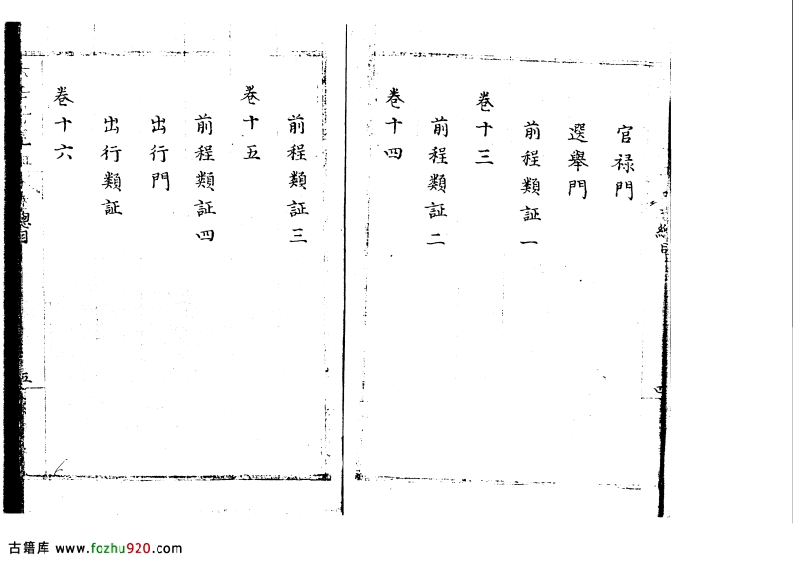 官禄門
選舉門
前程類証一
卷十三
前程類証二
卷十四
前程類証三
卷十五
前程類証四
出行門
出行類証
卷十六
總目
四
總目
五
古籍库 www.fozhu920.com